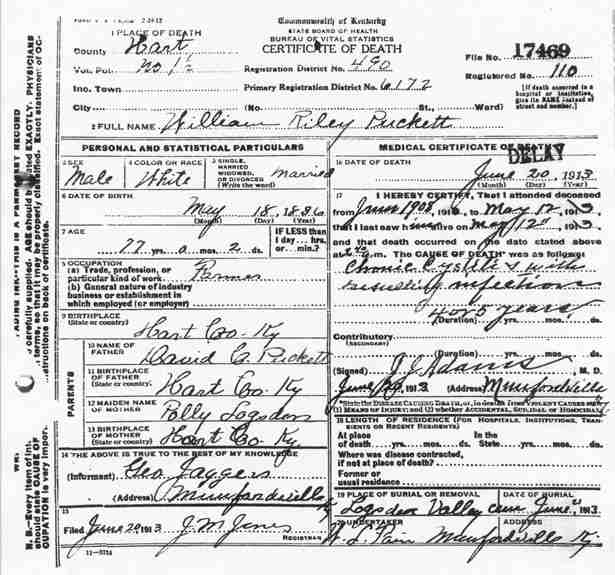 Commonwealth of Kentucky
STATE BOARD OF HEALTH
BUREAU OF VITAL STATISTICS
CERTIFICATE OF DEATH
1 PLACE OF DEATH
County Hart
Vot. Pct. No 1/2
Registration District No. 490
File No. 17469
Inc. Town
Primary Registration District No. 6172
Registered No. 110
City (No. St., Ward)
[If death occurred in a hospital or institution, give its NAME instead of street and number.]
2 FULL NAME William Riley Puckett
PERSONAL AND STATISTICAL PARTICULARS
3 SEX
Male
4 COLOR OR RACE
White
5 SINGLE, MARRIED WIDOWED, OR DIVORCED (Write the word)
Married
6 DATE OF BIRTH
May 18, 1836
(Month) (Day) (Year)
7 AGE
77 yrs. 0 mos. 2 ds.
IF LESS than 1 day... hrs. or... min.?
8 OCCUPATION
(a) Trade, profession, or particular kind of work Farmer
(b) General nature of industry business or establishment in which employed (or employer)
9 BIRTHPLACE
(State or country) Hart Co. Ky
PARENTS
10 NAME OF FATHER David C. Puckett
11 BIRTHPLACE OF FATHER
(State or country) Hart Co. Ky
12 MAIDEN NAME OF MOTHER Polly Logsdon
13 BIRTHPLACE OF MOTHER
(State or country) Hart Co. Ky
14 THE ABOVE IS TRUE TO THE BEST OF MY KNOWLEDGE
(Informant) Geo Jaggers
(Address) Munfordville
15
Filed June 20, 1913 J. M. Jones
REGISTRAR
MEDICAL CERTIFICATE OF DEATH
DELAY
16 DATE OF DEATH
June 20, 1913
(Month) (Day) (Year)
17 I HEREBY CERTIFY, That I attended deceased
from June 1908, 191, to May 12, 1913,
that I last saw him alive on May 12, 1913,
and that death occurred on the date stated above
at m. The CAUSE OF DEATH* was as follows:
Chronic Cystitis with
resulting infection
4 or 5 years
(Duration) yrs. mos. ds.
Contributory
(SECONDARY)
(Duration) yrs. mos. ds.
(Signed) J. J. Adams, M. D.
June 1913 (Address) Munfordville
*State the DISEASE CAUSING DEATH, or, in deaths from VIOLENT CAUSES state (1) MEANS OF INJURY; and (2) whether ACCIDENTAL, SUICIDAL or HOMICIDAL.
18 LENGTH OF RESIDENCE (FOR HOSPITALS, INSTITUTIONS, TRANSIENTS OR RECENT RESIDENTS)
At place of death yrs. mos. ds. In the State yrs. mos. ds.
Where was disease contracted, if not at place of death?
Former or usual residence
19 PLACE OF BURIAL OR REMOVAL
Logsdon Valley Cem
DATE OF BURIAL
June 21 1913
20 UNDERTAKER
ADDRESS
Munfordville Ky.
11-3218